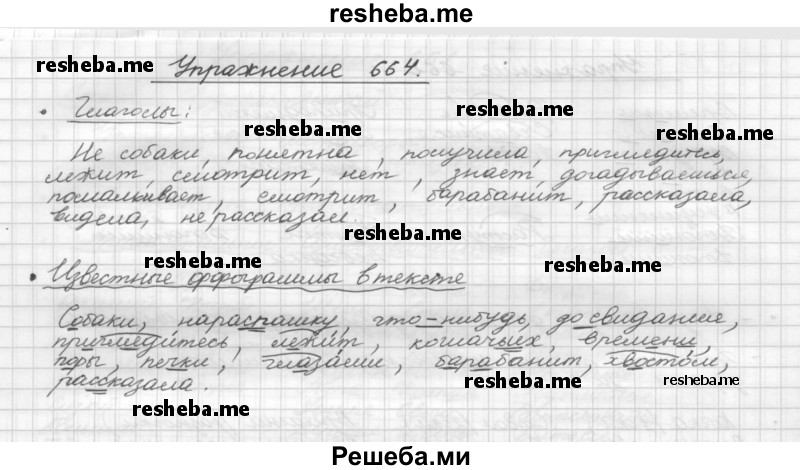 resheba.me
resheba.me
Упражнение 664.
Глаголы:
resheba.me
resheba.me
resheba.me
Не собаки, понятна, получила, приглядитесь,
лежит, смотрит, нет, знает, догадываешься,
помалкивает, смотрит, барабанит, рассказала,
видела, не рассказал.
resheba.me
resheba.me
resheba.me
Известные орфограммы в тексте
Собаки, нараспашку, что-нибудь, до свидание,
приглядитесь, лежит, кошачьих, времени,
поры, печки, глазами, барабанит, хвостом,
рассказала.
resheba.me
resheba.me
resheba.me
Решеба.ми